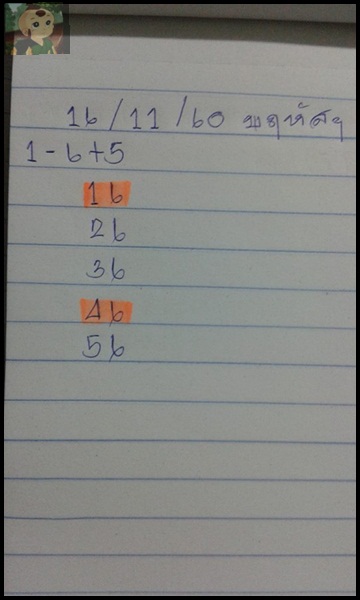 16/11/60 พฤหัสฯ
1-6+5
16
26
36
46
56